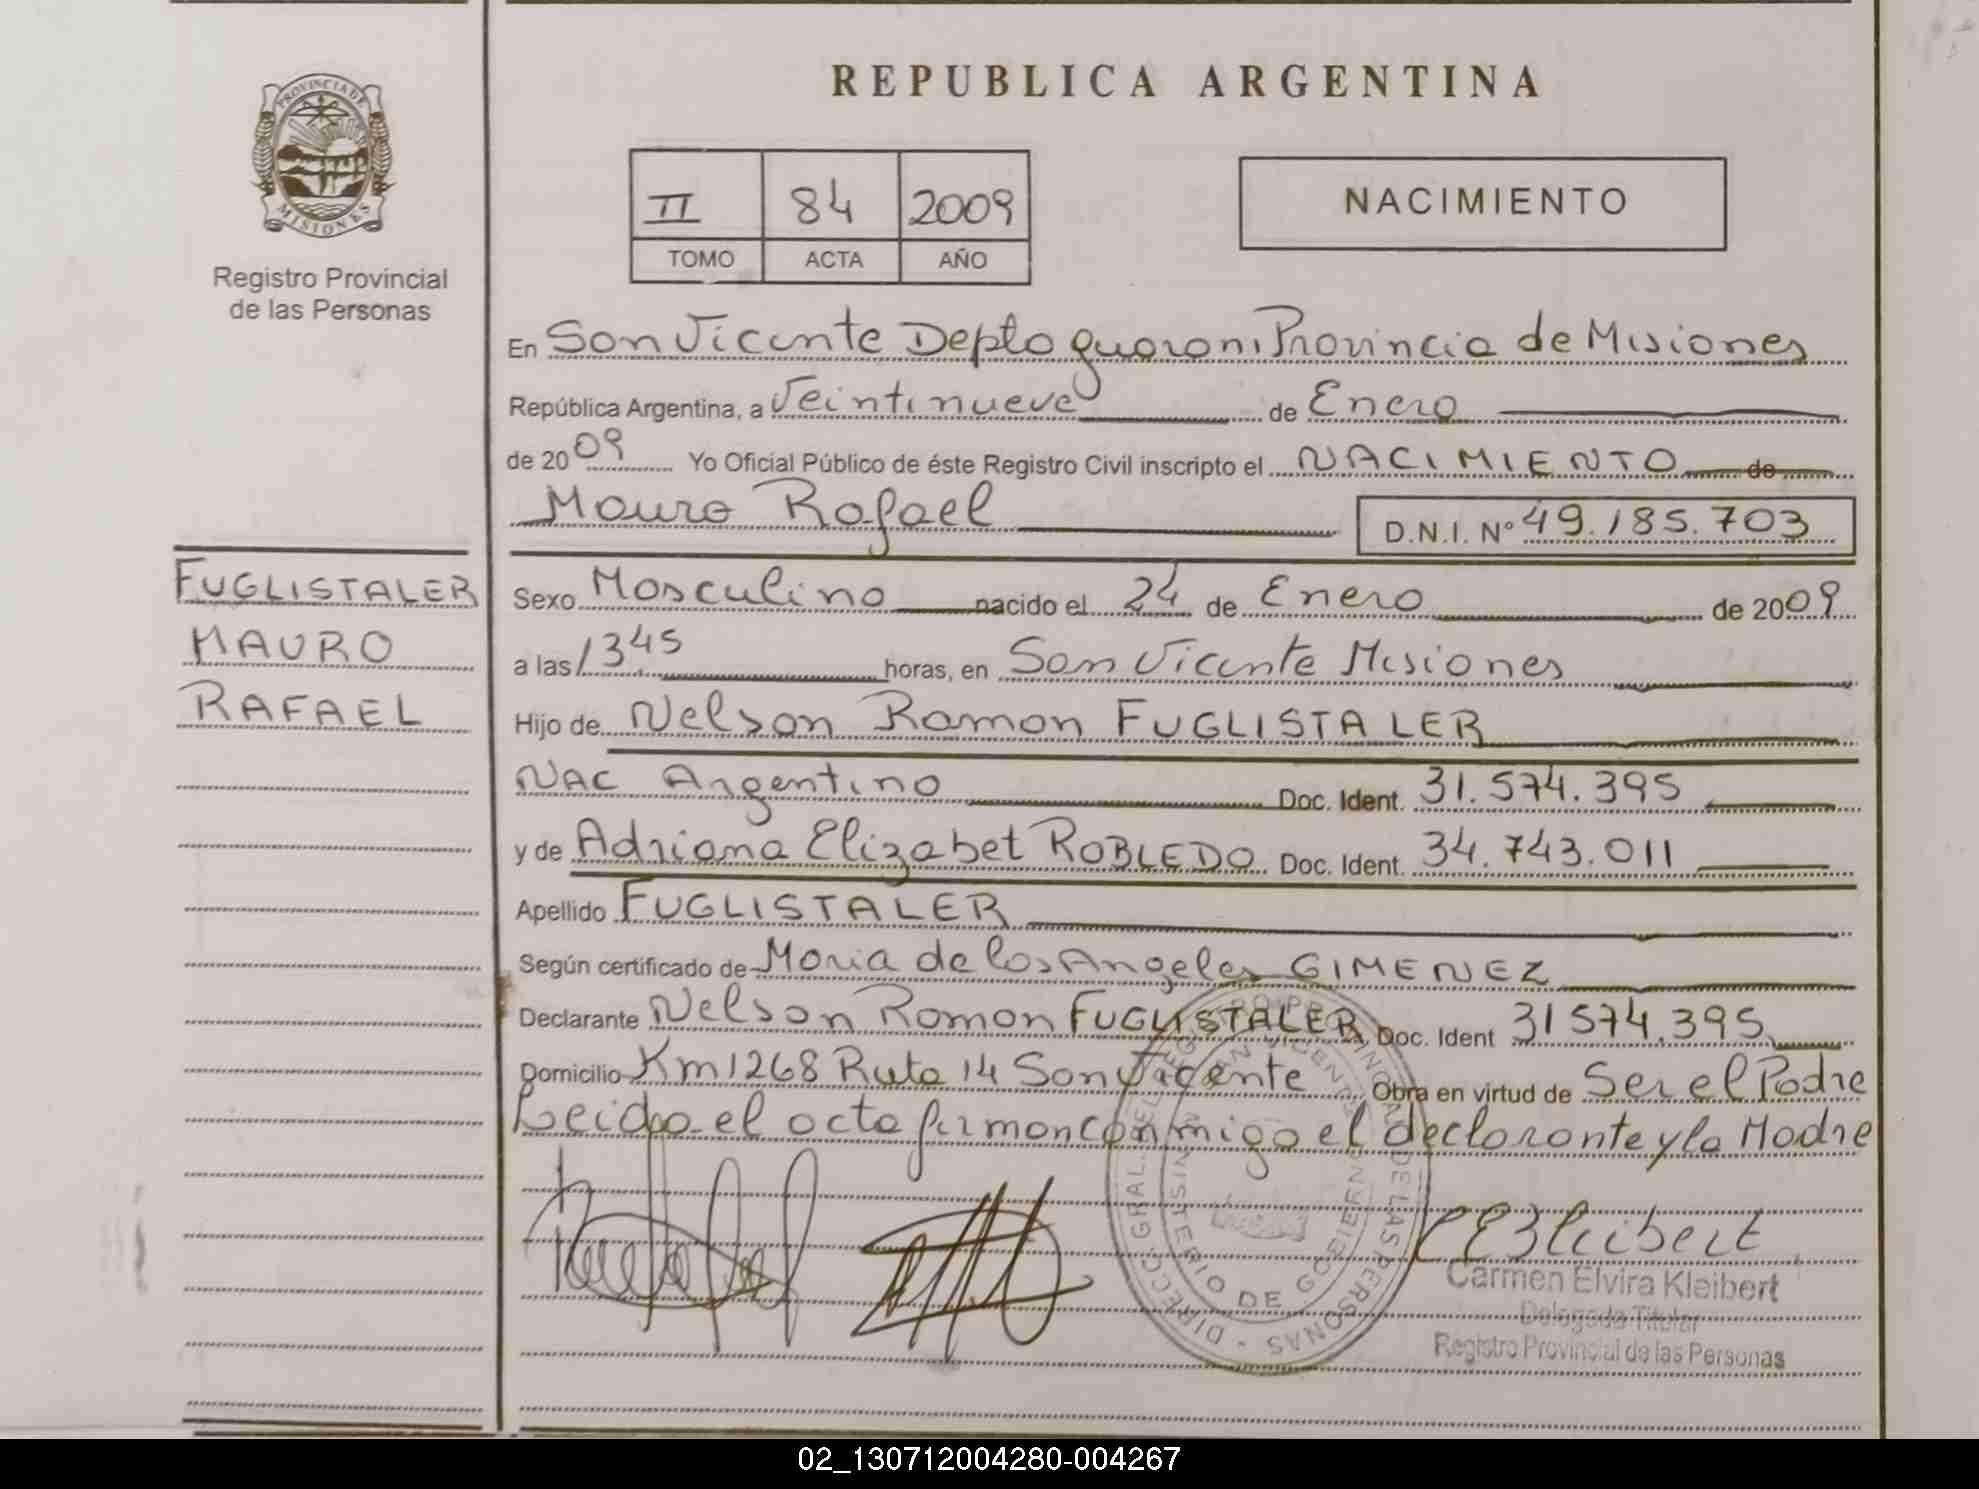 REPUBLICA ARGENTINA
PROVINCIA DE
MISIONES
Registro Provincial
de las Personas
II 84 2009
TOMO ACTA AÑO
NACIMIENTO
En San Vicente Depto guarani Provincia de Misiones
República Argentina, a Veintinueve de Enero
de 2009 Yo Oficial Público de éste Registro Civil inscripto el NACIMIENTO de
Mauro Rafael D.N.I. Nº 49.185.703
FUGLISTALER
MAURO
RAFAEL
Sexo Masculino nacido el 24 de Enero de 2009
a las 1345 horas, en San Vicente Misiones
Hijo de Nelson Ramon FUGLISTALER
NAC Argentino Doc. Ident. 31.574.395
y de Adriana Elizabet ROBLEDO Doc. Ident. 34.743.011
Apellido FUGLISTALER
Según certificado de Maria de los Angeles GIMENEZ
Declarante Nelson Ramon FUGLISTALER Doc. Ident 31574.395
Domicilio Km 1268 Ruta 14 San Vicente Obra en virtud de Ser el Padre
Leida el acta firman conmigo el declarante y la Madre
Carmen Elvira Kleibert
Delegada Titular
Registro Provincial de las Personas
02_130712004280-004267